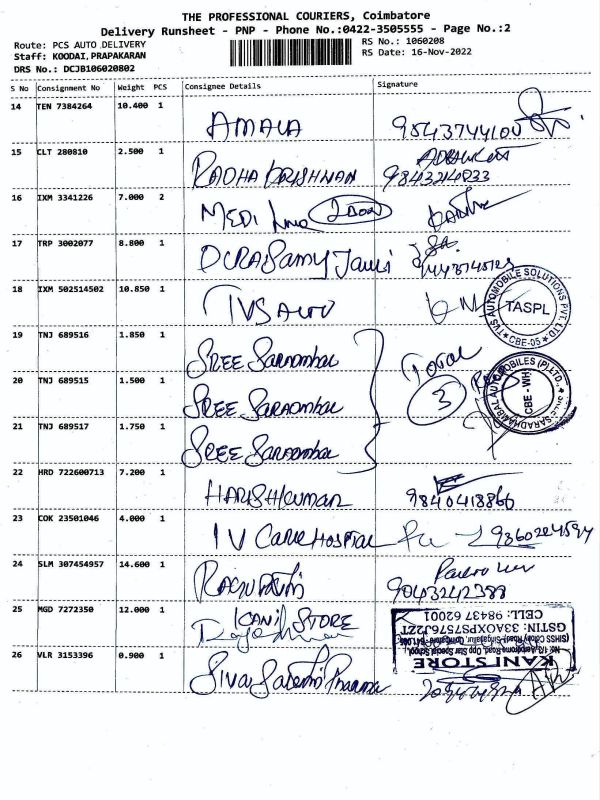 THE PROFESSIONAL COURIERS, Coimbatore
Delivery Runsheet - PNP - Phone No.:0422-3505555 - Page No.:2
Route: PCS AUTO DELIVERY
RS No.: 1060208
Staff: KOODAI,PRAPAKARAN
RS Date: 16-Nov-2022
DRS No.: DCJB106020802
S No Consignment No Weight PCS Consignee Details Signature
14 TEN 7384264 10.400 1
AMALA 9543744100
15 CLT 280810 2.500 1
RADHA KRISHNAN 9843214033
16 IXM 3341226 7.000 2
MEDI
17 TRP 3002077 8.800 1
DURAI Samy
18 IXM 502514502 10.850 1
TVS AUTO
TVS AUTOMOBILE SOLUTIONS PVT LTD
TASPL
CBE-05
19 TNJ 689516 1.850 1
SREE Saradambal
Total
20 TNJ 689515 1.500 1
SREE Saradambal
3
SARADHAMBAL AUTOMOBILES (P) LTD.
CBE - WH
21 TNJ 689517 1.750 1
SREE Saradambal
22 HRD 722600713 7.200 1
HARISH KUMAR 9840418866
23 COK 23501046 4.000 1
IV CARE HOSPITAL
24 SLM 307454957 14.600 1
9043242388
25 MGD 7272350 12.000 1
KANI STORE
KANI STORE
GSTIN: 33AOXPS7576J2ZT
CELL: 98437 62001
26 VLR 3153396 0.900 1
Siva Sakthi Pharma